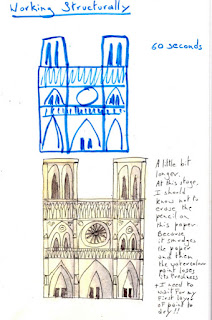 Working Structurally
60 seconds
A little bit
longer.
At this stage,
I should
know not to
erase the
pencil on
this paper.
Because,
it smudges
the paper
and then
the watercolour
paint loses
its freshness
+ I need to
wait for my
first layer
of paint to
dry!!